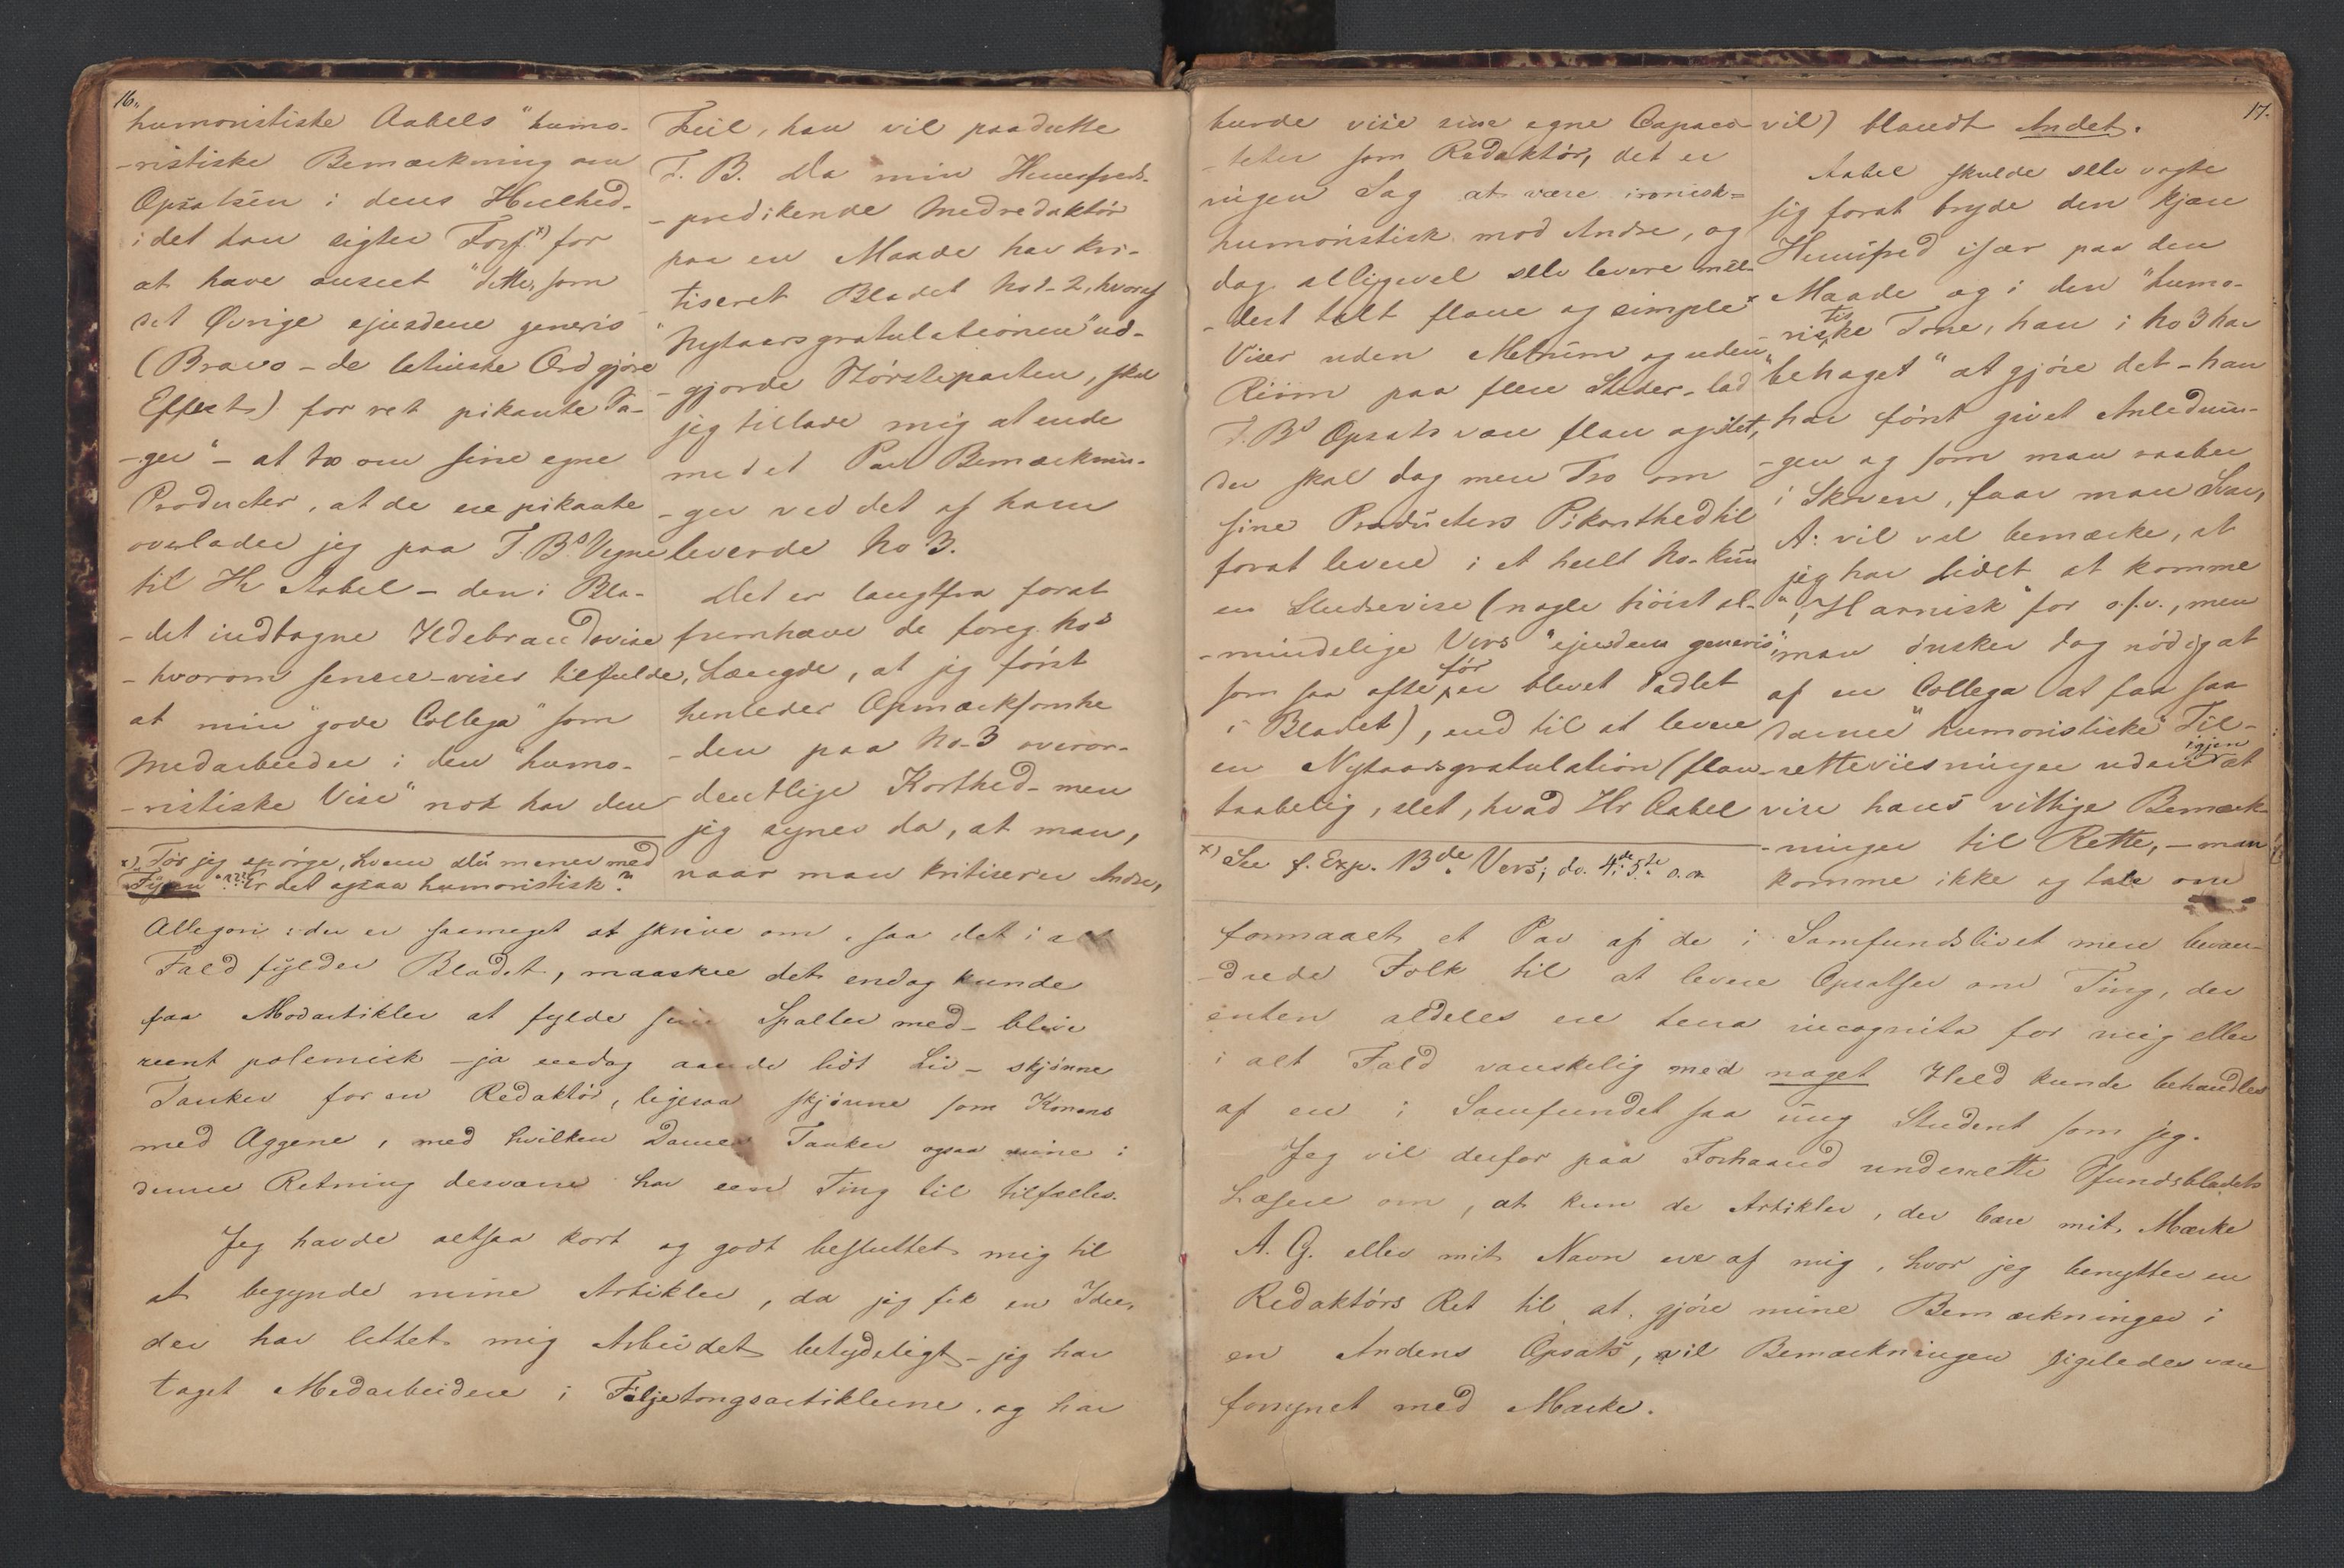 16.
humoristiske Aabels "humo-
-ristiske Bemærkning om
Opsatsen i dens Heelhed-
idet han sigter Forf.x) for
at have anseet "dette, som
det Øvrige ejusdem generis
(Bravo - de latinske Ord gjøre
Effect) for ret pikante Sa-
-ger" - at troe om sine egne
Producter, at de ere pikante
overlader jeg paa T. Bs Vegne
til Hr Aabel - den i Bla-
-det indtagne Ildebrandsvise
- hvorom senere - viser tilfulde,
at min "gode Collega" som
Medarbeider i den "humo-
-ristiske Vise" nok har den
x) Tør jeg spørge, hvem du mener med
Fyren"??? Er det ogsaa humoristisk?
Feil, han vil paadutte
T. B. Da min Huusfreds-
-predikende Medredaktør
paa en Maade har kri-
tiseret Bladet No 1-2, hvoraf
"Nytaarsgratulationen" ud-
-gjorde Størsteparten, skal
jeg tillade mig at ende
med et Par Bemærknin-
-ger ved det af ham
leverede No 3.
Det er langtfra forat
fremhæve de foreg. Nos
Længde, at jeg først
henleder Opmærksomhe
-den paa No-3 overor-
-dentlige Korthed - men
jeg synes da, at man,
naar man kritiserer Andre,
Allegori : der er saameget at skrive om, saa det i alt
Fald fylder Bladet, maaskee det endog kunde
faa Modartikler at fylde sine Spalter med - blive
reent polemisk - ja endog aande lidt Liv - skjønne
Tanker for en Redaktør, ligesaa skjønne som Konens
med Æggene, med hvilken Dames Tanker ogsaa mine i
denne Retning desværre har een Ting til tilfælles.
Jeg havde altsaa kort og godt besluttet mig til
at begynde mine Artikler, da jeg fik en Idee,
der har lettet mig Arbeidet betydeligt - jeg har
taget Medarbeidere i Føljetongsartiklerne, og har
17.
burde vise sine egne Capaci-
-teter som Redaktør, det er
ingen Sag at være ironisk-
humoristisk mod Andre, og
dog alligevel selv levere mil-
-dest talt flaue og simplex
Viser uden Metrum og uden
Riim paa flere Steder - lad
T. Bs Opsats være flau og slet,
der skal dog mere Tro om
sine Producters Pikanthed til
forat levere i et heelt No. kun
en Studsevise (nogle høist al-
-mindelige Vers "ejusdem generis",
som saa ofte før er blevet dadlet
i Bladet), end til at levere
en Nytaarsgratulation (flau
taabelig, slet, hvad Hr Aabel
x) See f. Exp. 13de Vers; do. 4de; 5te o.a.
vil) blandt Andet.
Aabel skulde selv vogte
sig forat bryde den kjære
Huusfred især paa den
Maade og i den "humo-
-ristiske Tone, han i No 3 har
"behaget" at gjøre det - han
har først givet Anlednin-
-gen og som man raaber
i Skoven, faar man Svar,
A: vil vel bemærke, at
jeg har lidet at komme
"i Harnisk" for o.s.v., men
man ønsker dog nødig at
af en Collega at faa saa
danne "humoristiske" Til-
-retteviisninger uden igjen at
vise hans vittige Bemærk-
-ninger til Rette, - man
komme ikke og tale om
formaaet et Par af de i Samfundslivet mere bevan-
-drede Folk til at levere Opsatser om Ting, der
enten aldeles ere terra incognita for mig eller
i alt Fald vanskelig med noget Held kunde behandles
af en i Samfundet saa ung Student som jeg.
Jeg vil derfor paa Forhaand underrette Sfundsbladets
Læsere om, at kun de Artikler, der bære mit Mærke
A. G. eller mit Navn ere af mig, hvor jeg benytter en
Redaktørs Ret til at gjøre mine Bemærkninger i
en Andens Opsats, vil Bemærkningen ligeledes være
forsynet med Mærke.